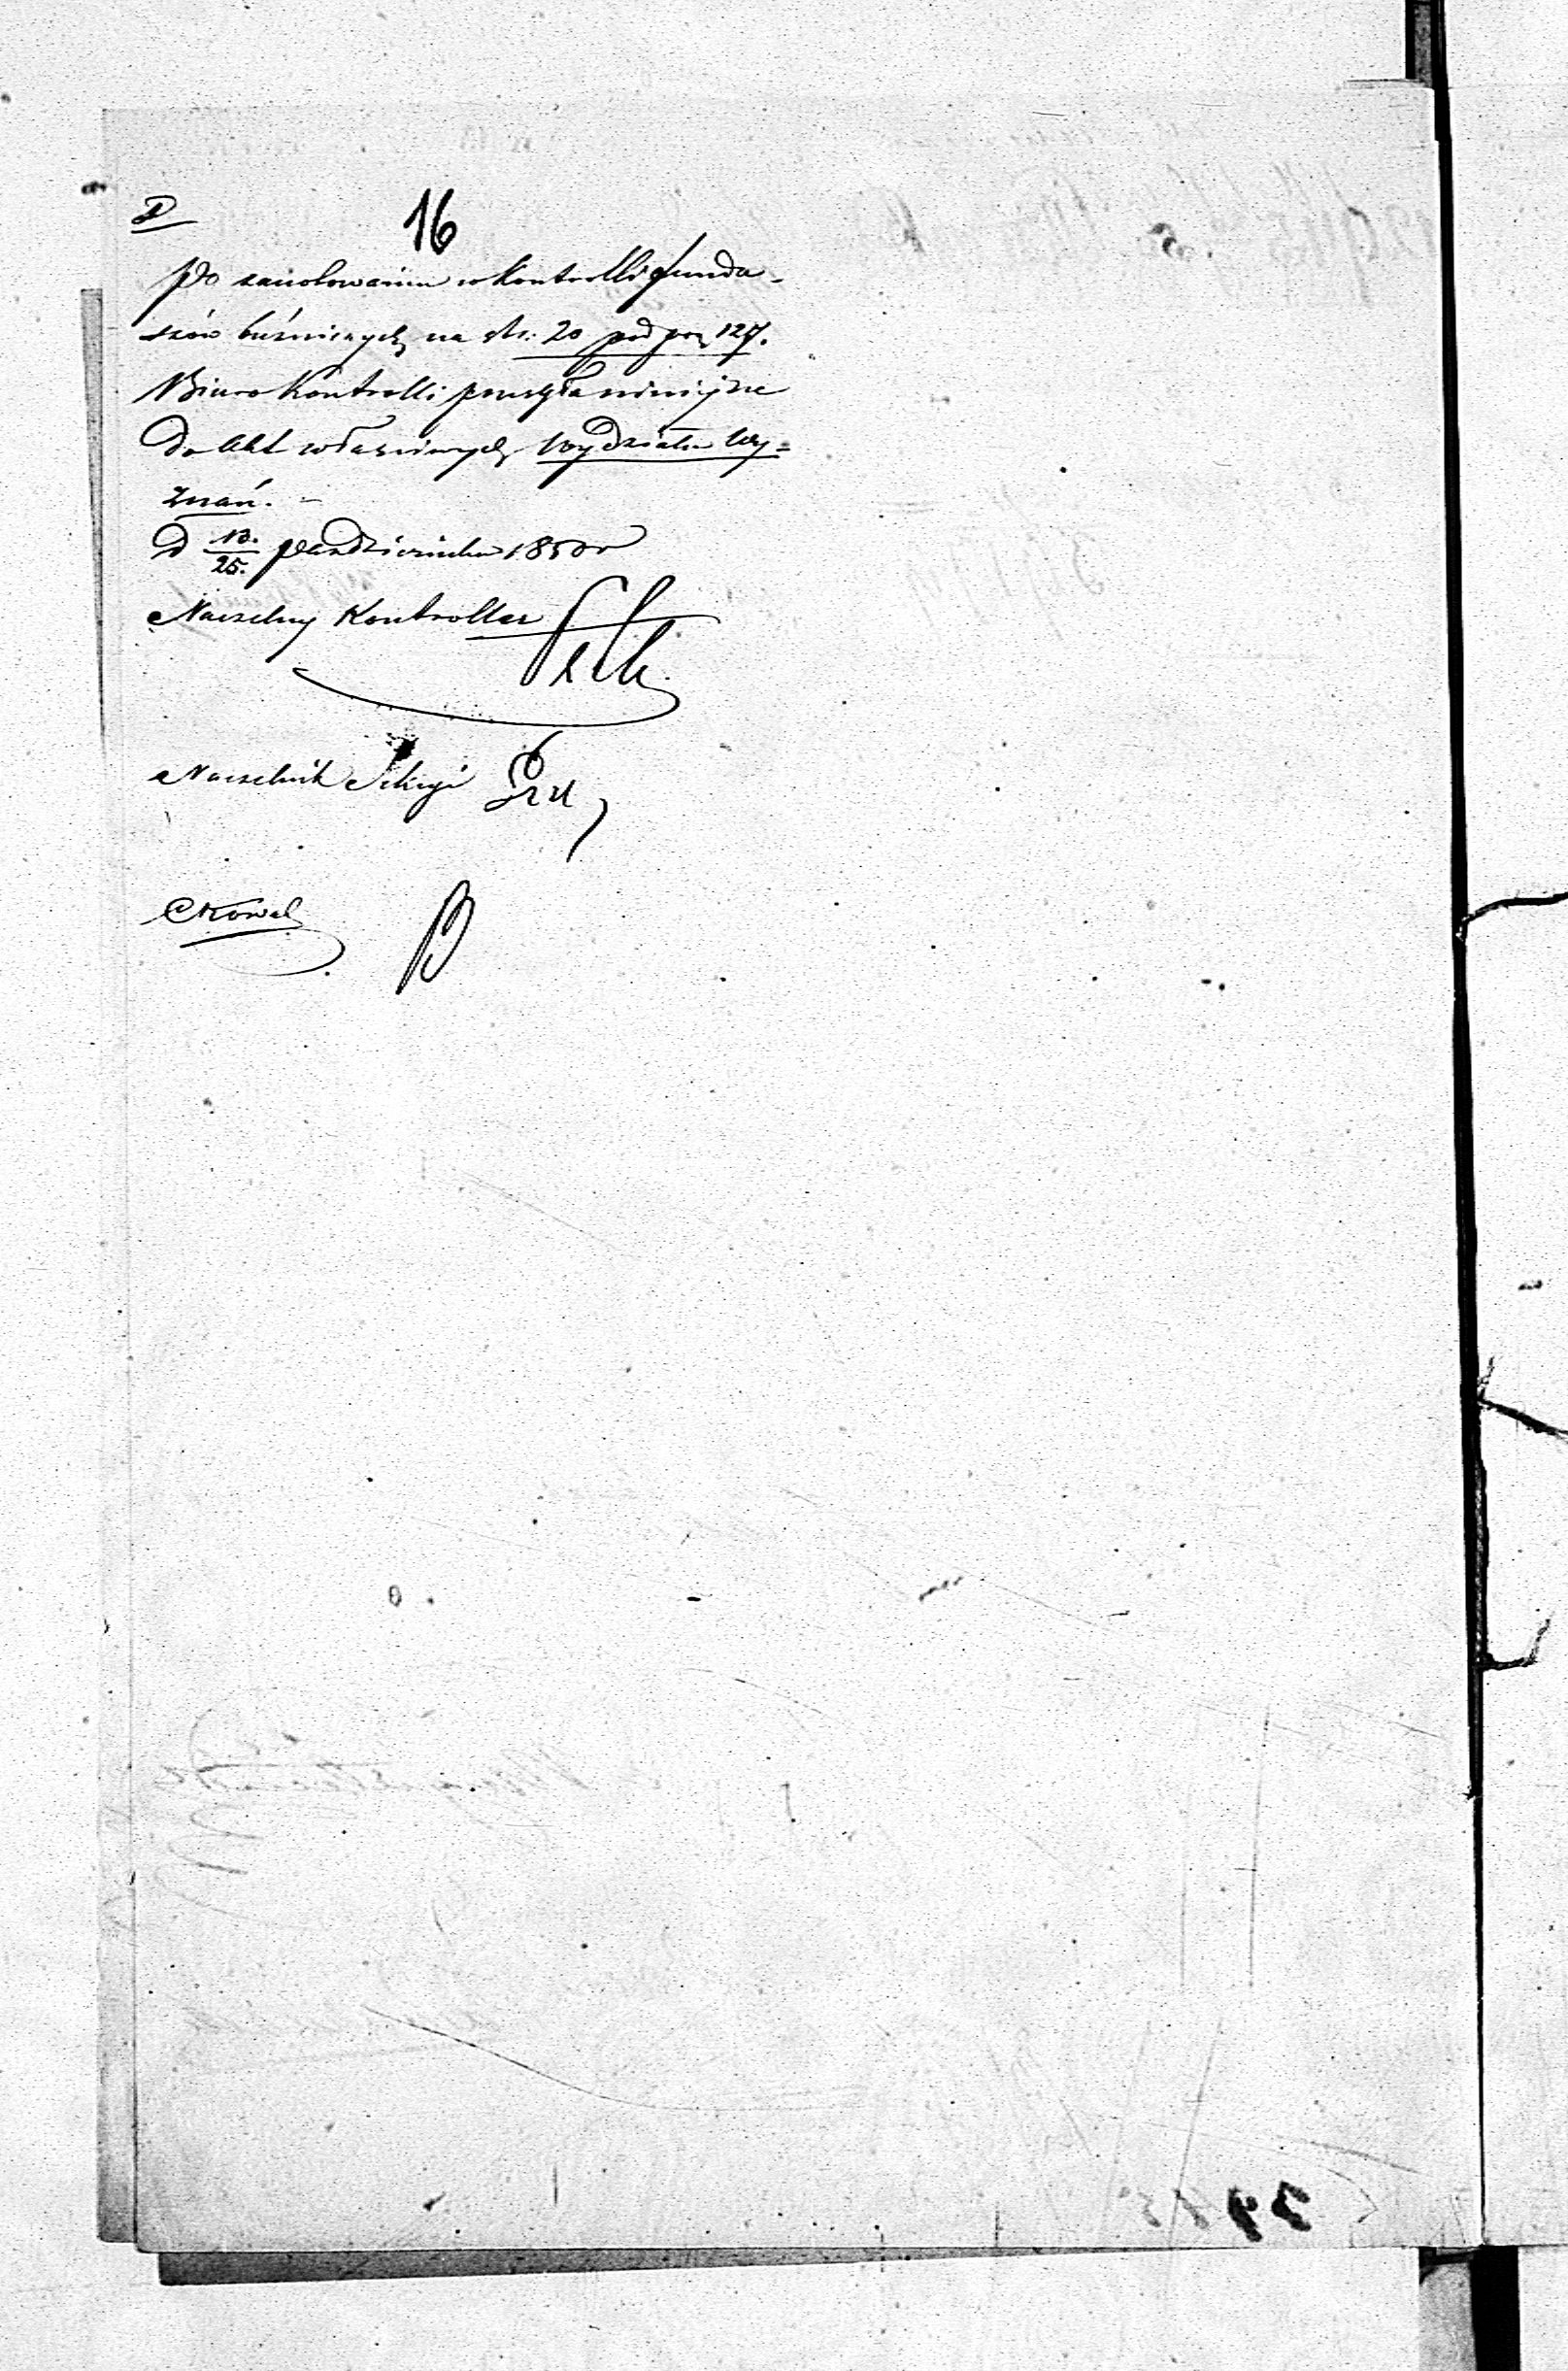 D
16
Po zanotowaniu w Kontrolli fundu-
szów bużniczych na str: 20 pod poz 127.
Biuro Kontrolli przesyła niniejsze
do Akt właściwych Wydziału Wy=
znań. -
d 13./25. Października 1850 r
Naczelny Kontroller
Naczelnik Sekcyi